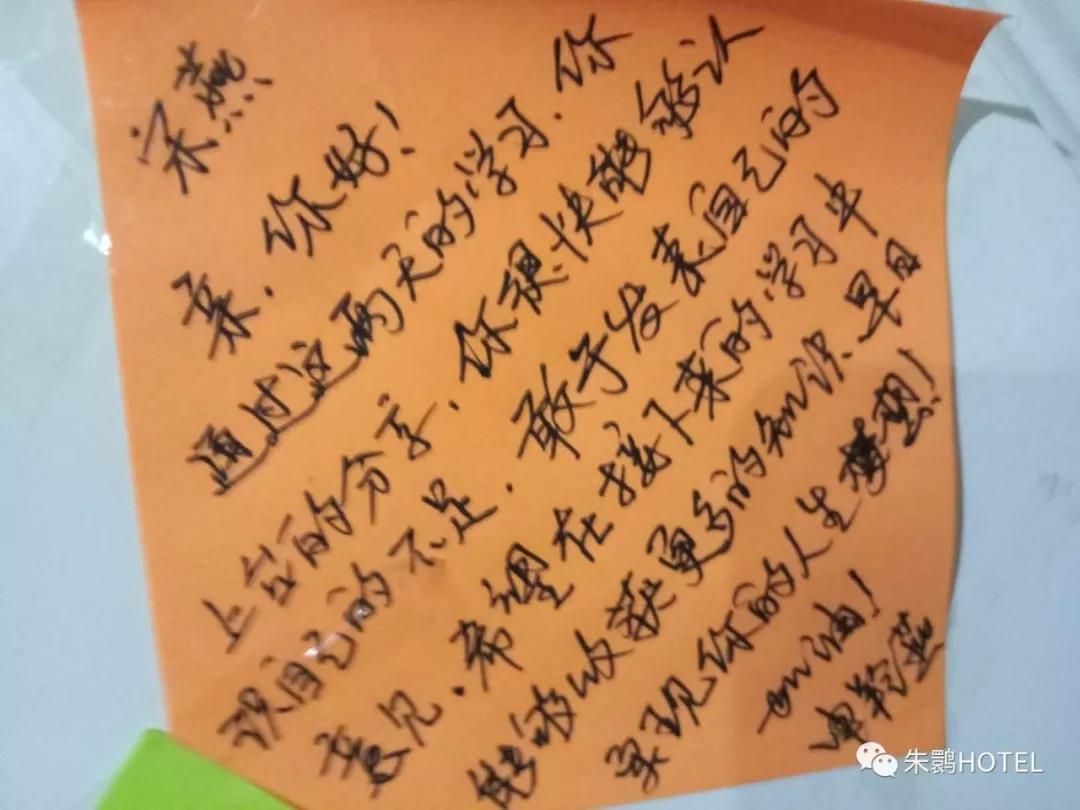 宋燕
亲，你好！
通过这两天的学习，你
上台的分享，你很快能够认
识自己的不足，敢于发表自己的
意见，希望在接下来的学习中
能够收获更多的知识，早日
实现你的人生梦想！
加油！
申 燕
朱鹮HOTEL